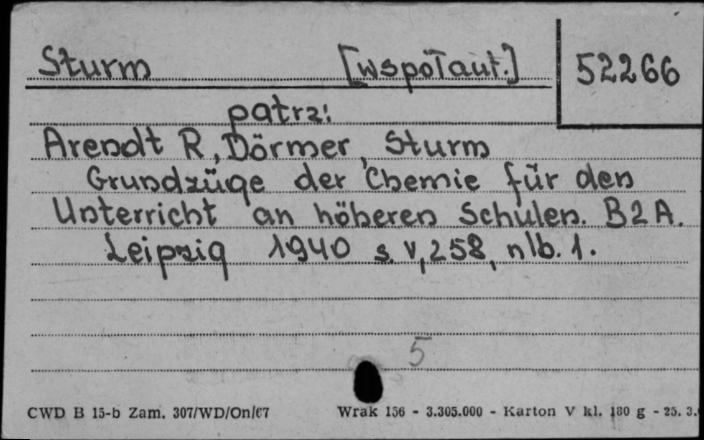 Sturm [współaut.] 52266
patrz:
Arendt R, Dörmer, Sturm
Grundzüge der Chemie für den
Unterricht an höheren Schulen. B2A.
Leipzig 1940 s. V, 258, nlb. 1.
5
CWD B 15-b Zam. 307/WD/On/67 Wrak 156 - 3.305.000 - Karton V kl. 180 g - 25. 3.